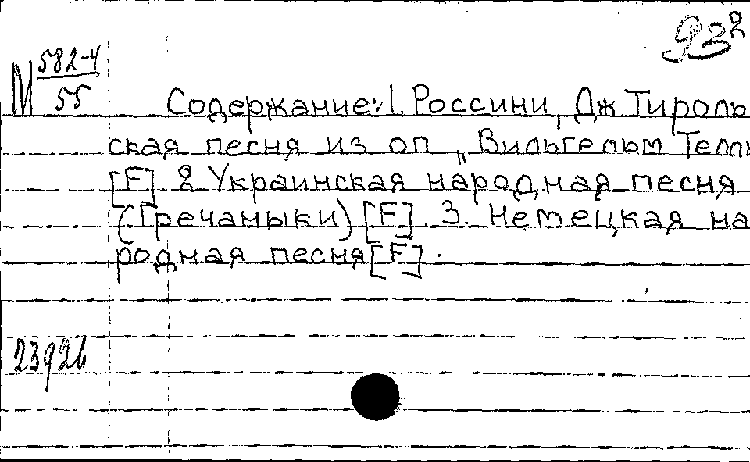 93²
М 582-4
55
Содержание: 1. Россини, Дж Тироль
ская песня из оп „Вильгельм Телль
[F] 2 Украинская народная песня
(Гречаныки) [F]. 3. Немецкая на
родная песня [F].
23926